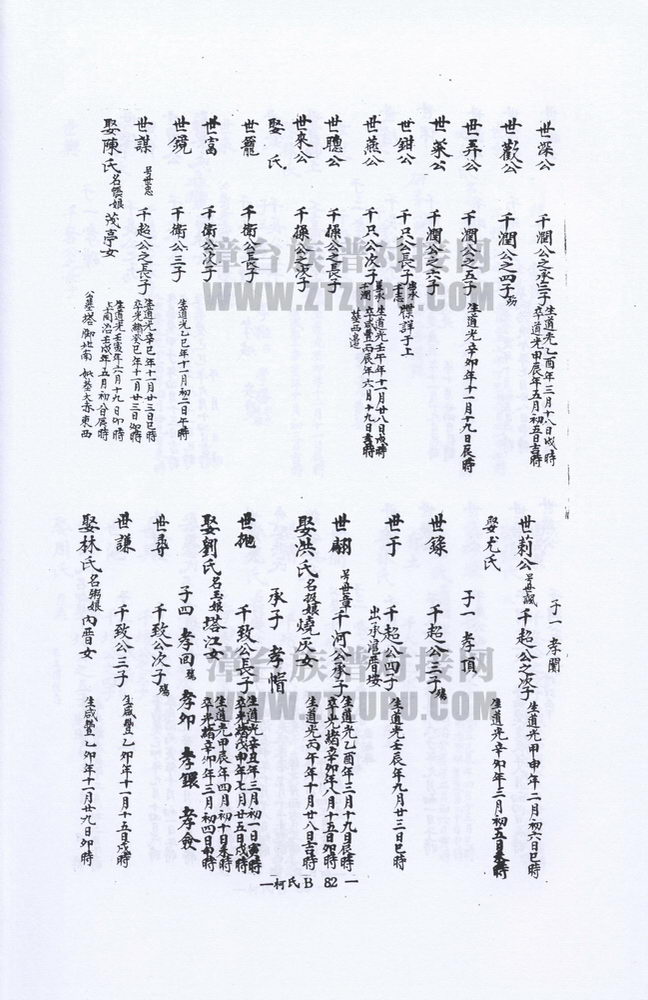 世深公 千潤公之承三子 生道光乙酉年三月十八日戌時
卒道光甲辰年五月初五日吉時
世歡公 千潤公之四子
世弄公 千潤公之五子 生道光辛卯年十一月十九日辰時
世菜公 千潤公之六子
世鉗公 千只公長子 牒詳于上
世燕公 千只公次子 生道光壬午年十一月廿八日戌時
卒咸豐丙辰年六月十九日吉時
世聰公 千操公之長子
世來公 千操公之次子
娶 氏
世寵 千衛公長子
世富 千衛公次子
世鏡 千衛公三子 生道光乙巳年十一月初二日午時
世謀 千超公之長子 生道光辛巳年十一月廿三日巳時
卒光緒癸巳年十一月廿三日卯時
娶陳氏 茂亭女 生道光壬寅年六月十九日卯時
子一 孝開
世莉公 号世誠 千超公之次子 生道光甲申年二月初六日巳時
娶尤氏 生道光辛卯年三月初五日未時
子一 孝頂
世錄 千超公三子 殤
世于 千超公四子 生道光壬辰年九月廿三日巳時
世翮 号世章 千河公承子 生道光乙酉年三月十九日辰時
卒光緒辛卯年八月十五日卯時
娶洪氏 燒灰女 生道光丙午年十月廿八日吉時
承子 孝惰
世拋 千致公長子 生道光辛丑年三月初一日寅時
娶劉氏 名玉娘 塔江女 生道光甲辰年四月初十日未時
卒光緒辛卯年三月初四日申時
子四 孝回 殤 孝卯 孝鐶 孝僉
世尋 千致公次子 殤
世謙 千致公三子 生咸豐乙卯年十一月十五日戌時
娶林氏 名粥娘 內晋女 生咸豐乙卯年十一月廿九日卯時
—柯氏B 82—
漳台族譜对接网
WWW.ZTZUPU.COM
漳台族譜对接网
WWW.ZTZUPU.COM